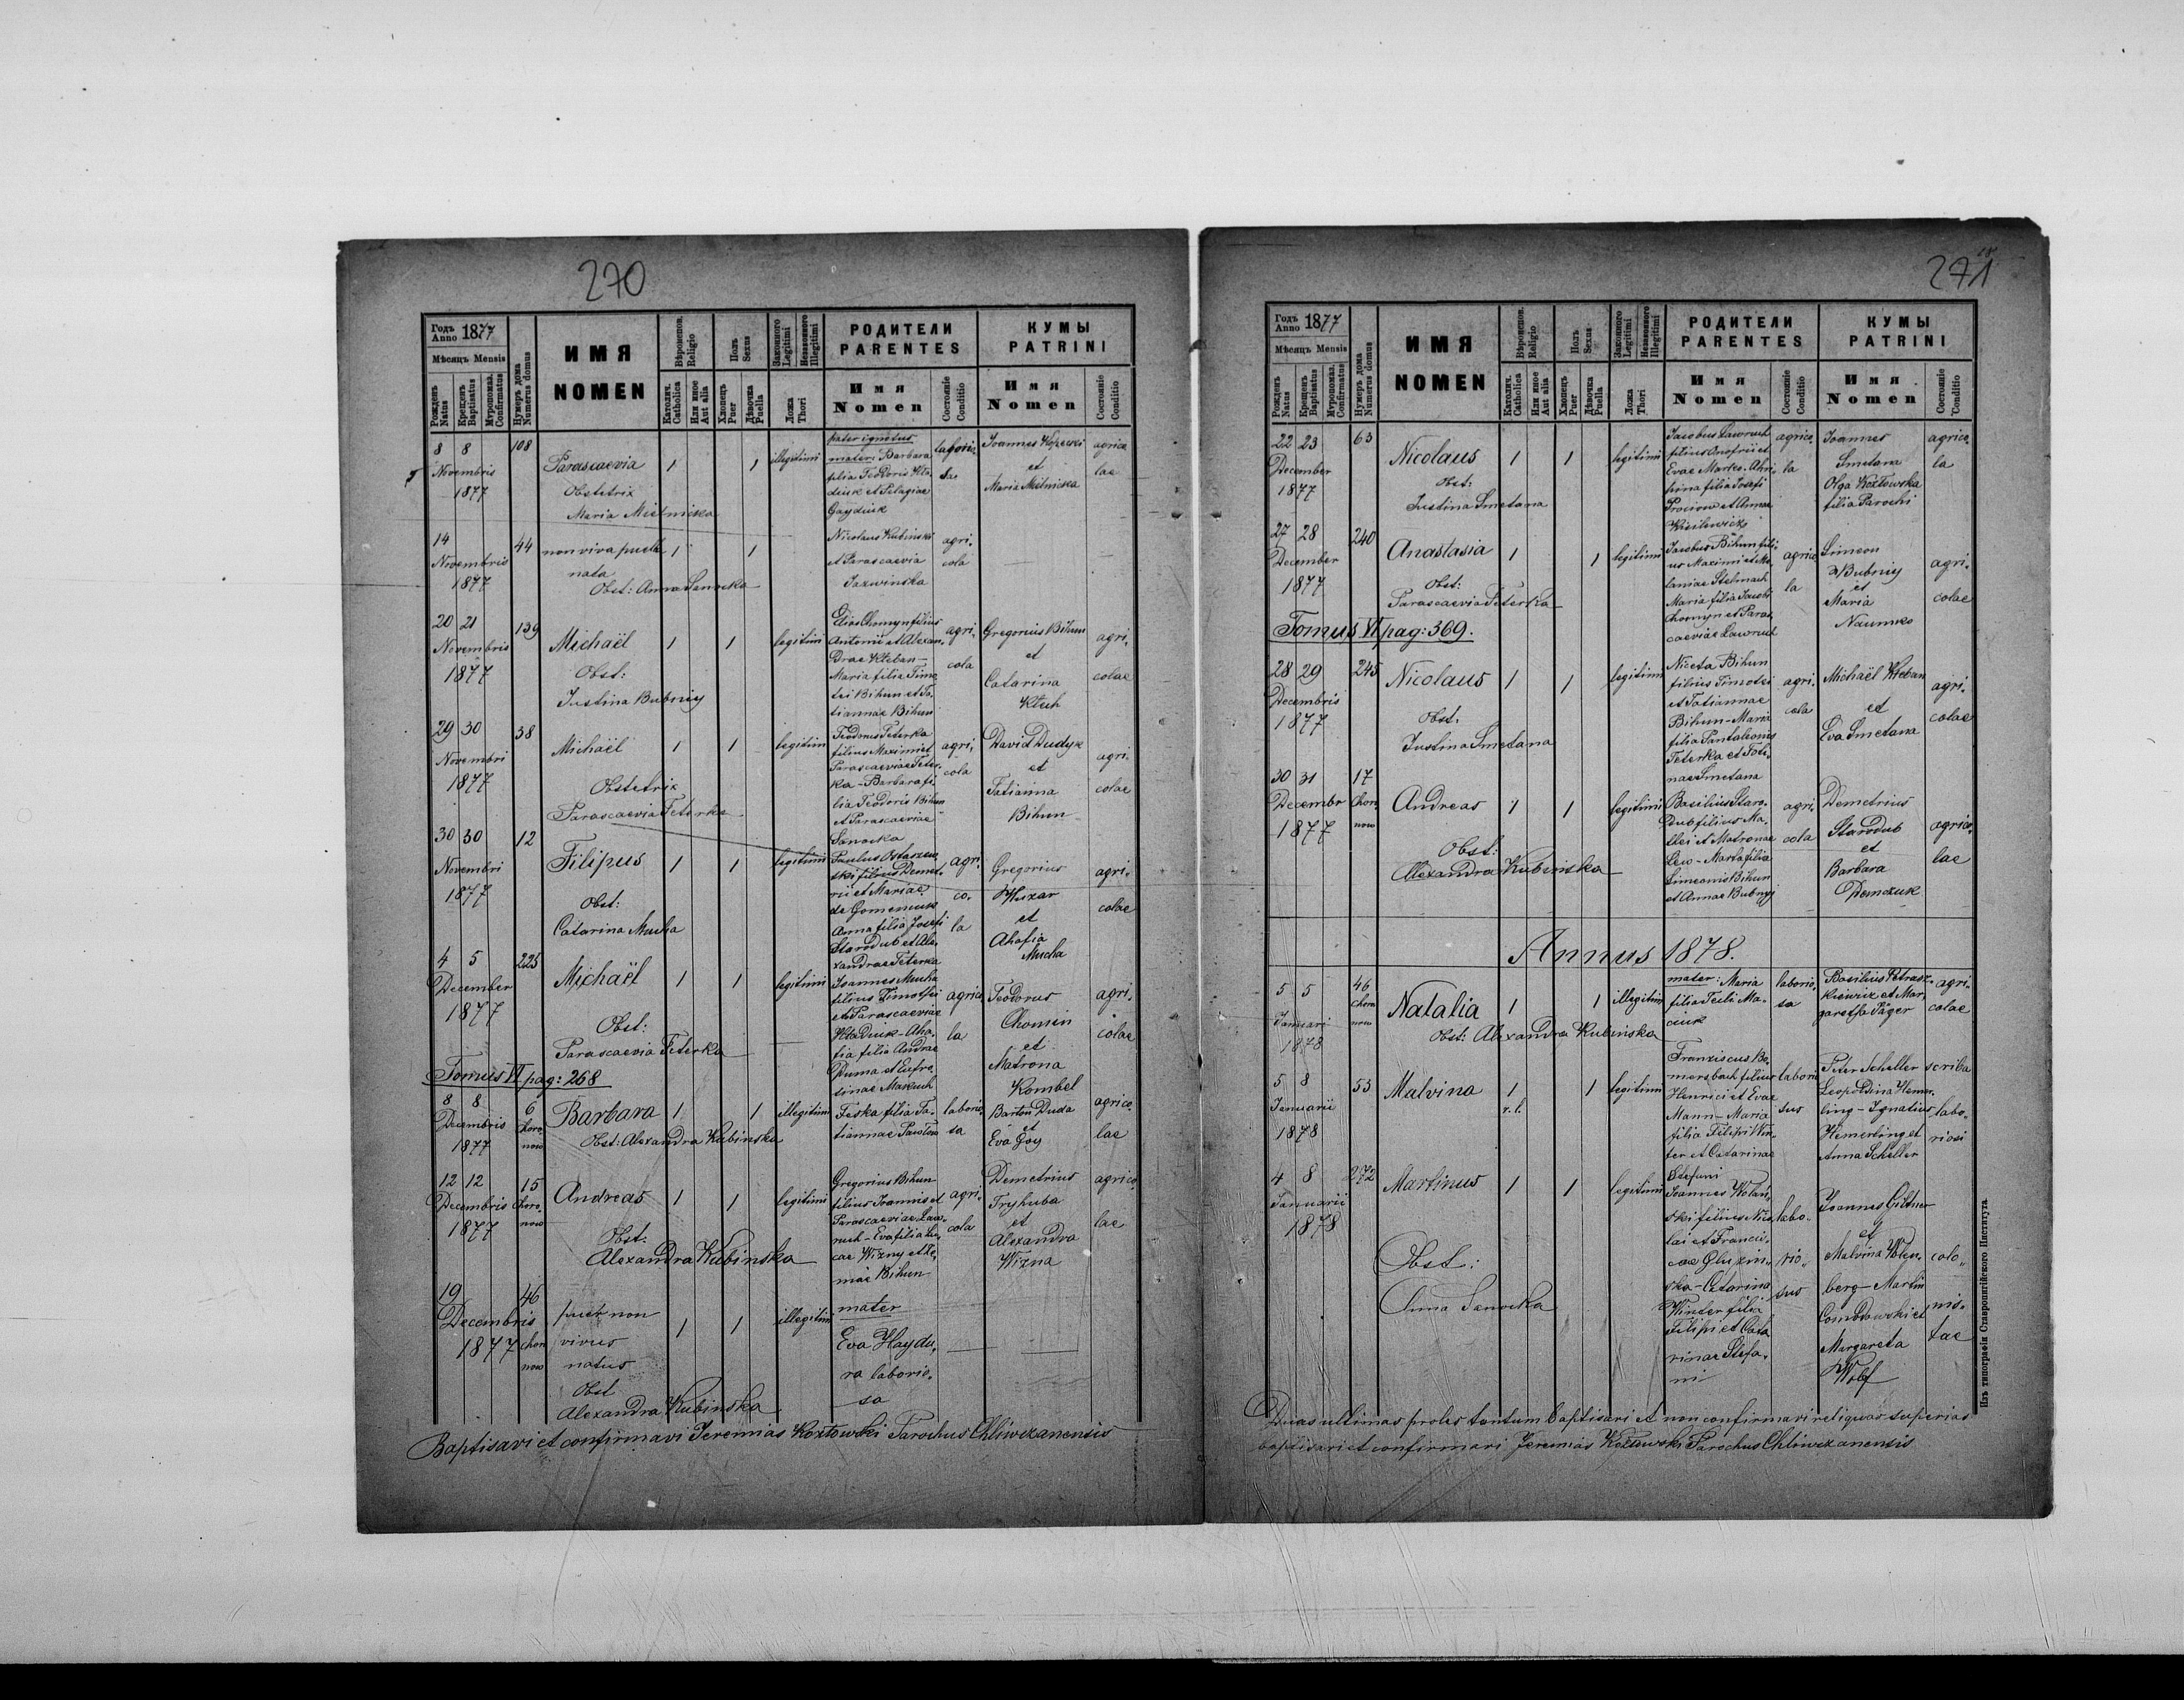 270
Годъ Anno 1877
Мѣсяцъ Mensis
Рожденъ Natus
Крещенъ Baptisatus
Мѵропомаз. Confirmatus
Нумеръ дома Numerus domus
ИМЯ NOMEN
Вѣроиспов. Religio
Католич. Catholica
Или иное Aut alia
Полъ Sexus
Хлопецъ Puer
Дѣвочка Puella
Законного Legitimi
Незаконного Illegitimi
Ложа Thori
РОДИТЕЛИ PARENTES
Имя Nomen
Состояніе Conditio
КУМЫ PATRINI
Имя Nomen
Состояніе Conditio
8 8 Novembris 1877
108
Parascaevia
Obstetrix
Maria Mielnicka
1 1 illegitimi
pater ignotus
mater: Barbara
filia Teodoris
et Pelagiae
Gayduk
Joannes
et
Maria Mielnicka
agrico
lae
14 Novembris 1877
44
non viva puella
nata
Obst: Anna Sanocka
1 1
Nicolaus Kubinski
et Parascaevia
Jazwinska
agri-
cola
20 21 Novembris 1877
139
Michaël
Obst:
Justina Bubniy
1 1 legitimi
Elias Chomyn filius
Antonii et Alexan-
drae Kleban-
Maria filia Timo-
tei Bihun et Ta-
tiannae Bihun
agri-
cola
Gregorius Bihun
et
Catarina
Klech
agri-
colae
29 30 Novembri 1877
38
Michaël
Obstetrix
Parascaevia Teterka
1 1 legitimi
Teodorus Teterka
filius Maximi et
Parascaeviae Teter-
ka-Barbara fi-
lia Teodoris Bihun
et Parascaeviae
Sanocka
agri-
cola
David Dudyk
et
Tatianna
Bihun
agri-
colae
30 30 Novembri 1877
12
Filipus
Obst:
Catarina Mucha
1 1 legitimi
Paulus Ostaszew-
ski filius Demet-
rii et Mariae
de Gomeniuk
Anna filia Josefi
Starodub et Ale-
xandrae Teterka
agri-
co-
la
Gregorius
Huzar
et
Ahafia
Mucha
agri-
colae
4 5 December 1877
225
Michaël
Obst:
Parascaevia Teterka
1 1 legitimi
Joannes Mucha
filius Timothei
et Parascaeviae
Kladiuk-Aha-
fia filia Andrae
Duma et Eufro-
sinae Makuch
agrico
la
Teodorus
Chomin
et
Matrona
Kombel
agri-
colae
Tomus VI pag: 268
8 8 Decembris 1877
6 Choro-
now
Barbara
Obst: Alexandra Kubinska
1 1 illegitimi
Feska filia Ta-
tiannae Pawlow
laborio-
sa
Barton Duda
et
Eva Goy
agrico-
lae
12 12 Decembris 1877
15 Choro-
now
Andreas
Obst:
Alexandra Kubinska
1 1 legitimi
Gregorius Bihun
filius Joannis et
Parascaeviae Law-
ruch-Eva filia Lu-
cae Wizny et Te-
miae Bihun
agri-
cola
Demetrius
Tryhuba
et
Alexandra
Wizna
agrico-
lae
19 Decembris 1877
46 Chor
now
puer non
vivus
natus
Obst
Alexandra Kubinska
1 1 illegitimi
mater
Eva Haydu-
ra laborio-
sa
Baptisavi et confirmavi Jeremias Kozlowski Parochus Chliwczanensis
271
Годъ Anno 1877
Мѣсяцъ Mensis
Рожденъ Natus
Крещенъ Baptisatus
Мѵропомаз. Confirmatus
Нумеръ дома Numerus domus
ИМЯ NOMEN
Вѣроиспов. Religio
Католич. Catholica
Или иное Aut alia
Полъ Sexus
Хлопецъ Puer
Дѣвочка Puella
Законного Legitimi
Незаконного Illegitimi
Ложа Thori
РОДИТЕЛИ PARENTES
Имя Nomen
Состояніе Conditio
КУМЫ PATRINI
Имя Nomen
Состояніе Conditio
22 23 December 1877
63
Nicolaus
Obst:
Justina Smetana
1 1 legitimi
Jacobus Lawruch
filius Onofrii et
Evae Marko-Ahri-
pina filia Josefi
Prociow et Annae
Kisilewicz
agrico-
la
Joannes
Smetana
Olga Kozlowska
filia Parochi
agrico-
la
27 28 December 1877
240
Anastasia
Obst:
Parascaevia Teterka
1 1 legitimi
Jacobus Bihun fili-
us Maximi et Me-
laniae Stelmach
Maria filia Jacobi
Chomyn et Paras-
caeviae Lawruch
agrico-
la
Simeon
Bubniy
et
Maria
Naumko
agri-
colae
Tomus VI pag: 369.
28 29 Decembris 1877
245
Nicolaus
Obst.
Justina Smetana
1 1 legitimi
Niceta Bihun
filius Timotei
et Tatiannae
Bihun-Maria
filia Pantaleonis
Teterka et Foti-
nae Smetana
agri-
cola
Michaël Kleban
et
Eva Smetana
agri-
colae
30 31 Decembr 1877
17 Chor
now
Andreas
Obst:
Alexandra Kubinska
1 1 legitimi
Basilius Staro-
dub filius Ma-
ttei et Matronae
Lew-Marta filia
Simeonis Bihun
et Annae Bubniy
agri-
cola
Demetrius
Starodub
et
Barbara
Demczuk
agrico-
lae
Annus 1878.
5 5 Januari 1878
46 Chor
now
Natalia
Obst: Alexandra Kubinska
1 1 illegitimi
mater: Maria
filia Tecli Ma-
ciuk
laborio-
sa
Basilius Petrasz-
kiewicz et Mar-
garetha Jäger
agri-
colae
5 8 Januarii 1878
53
Malvina
1 r. l. 1 legitimi
Franziscus Bo-
mersbach filius
Henrici et Evae
Mann-Maria
filia Filipi Win-
ter et Catarinae
Stefani
laborio-
sus
Peter Scheller
Leopoldina Hemer-
ling-Ignatius
Hemerling et
Anna Scheller
scriba
labo-
riosi
4 8 Januarii 1878
272
Martinus
Obst:
Anna Sanocka
1 1 legitimi
Joannes Wolań-
ski filius Nico-
lai et Franciś-
cae Gluzin-
ska-Catarina
Winter filia
Filipi et Cata-
rinae Stefa-
ni
labo-
rio-
sus
Joannes Gildner
et
Malvina Wolen-
berg-Martin
et
Margareta
Wolf
colo-
nis-
tae
Duas ultimas proles tantum baptisavi et non confirmavi reliquas superias
baptisavi et confirmavi Jeremias Kozlowski Parochus Chliwczanensis
Изъ типографіи Ставропигійского Института